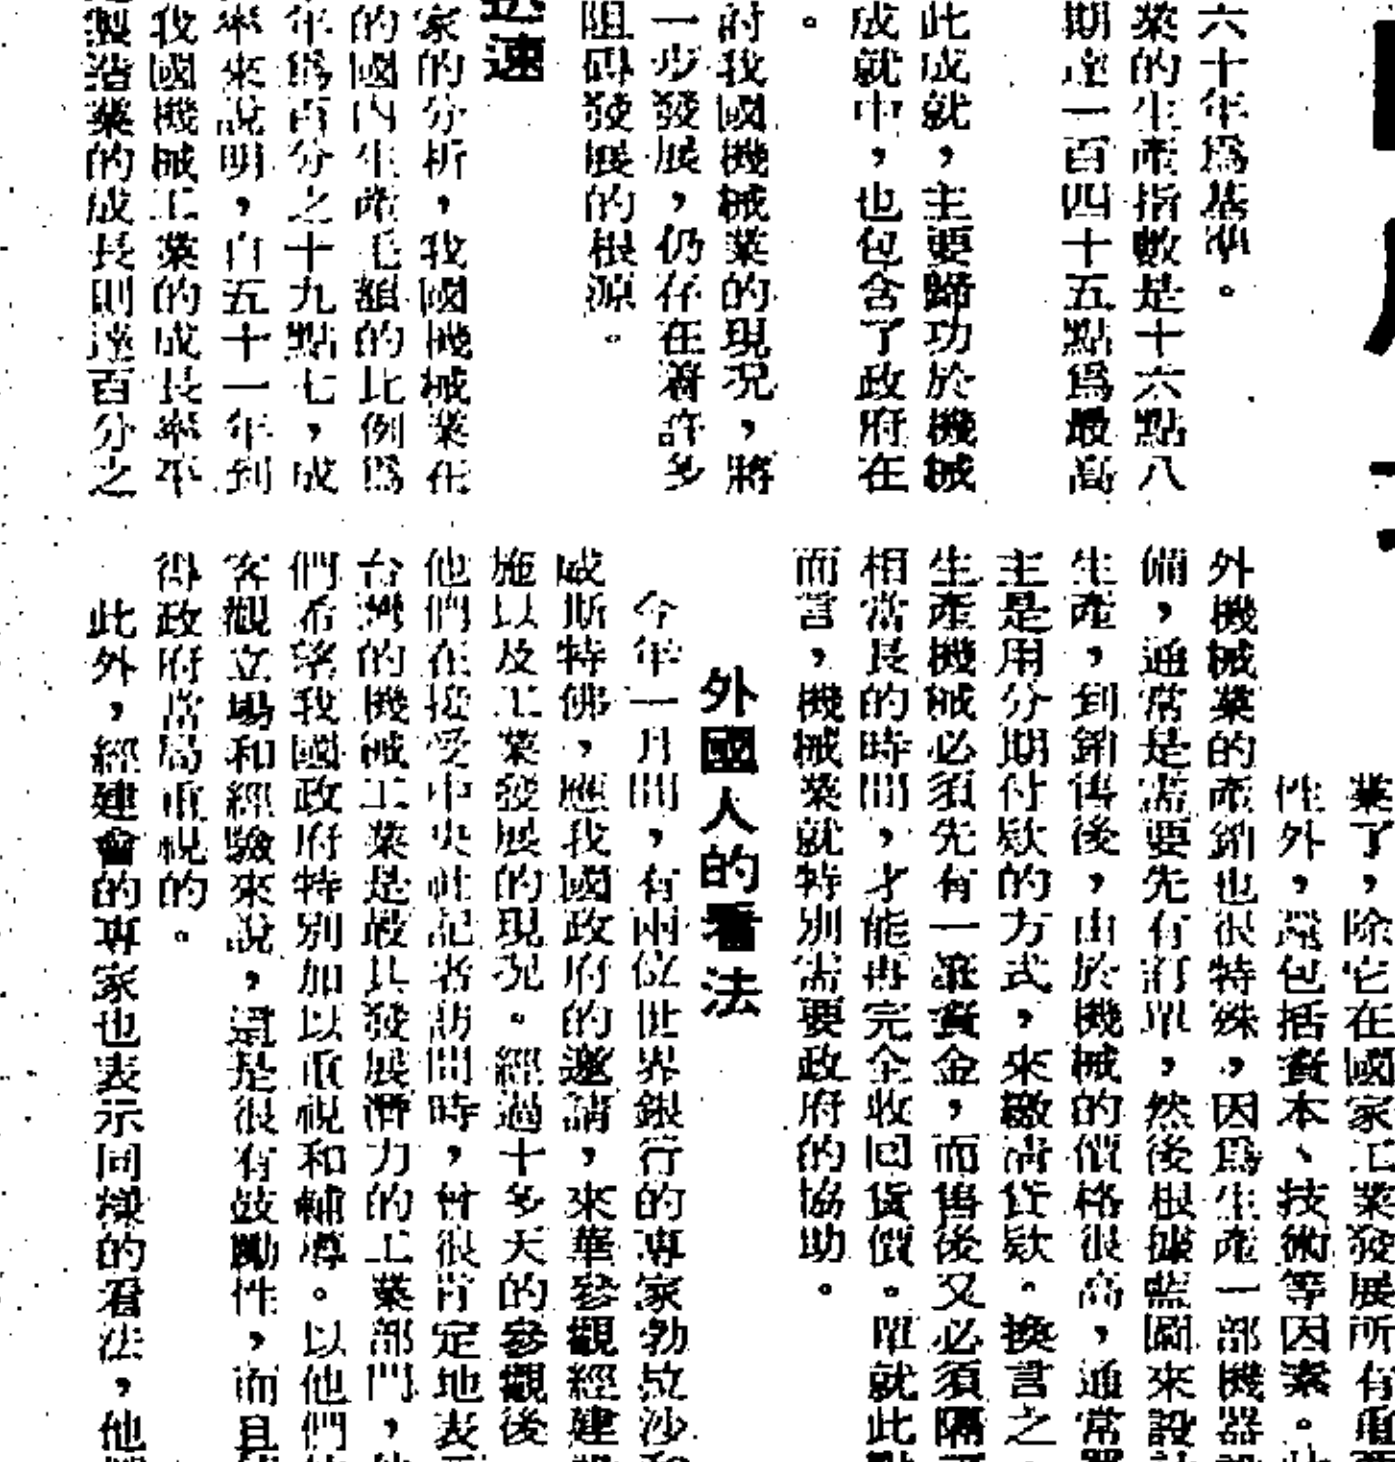 六十年爲基準。
業的生產指數是十六點八
期達一百四十五點爲最高
此成就，主要歸功於機械
成就中，也包含了政府在
。
討我國機械業的現況，將
一步發展，仍存在着許多
阻碍發展的根源。
速
家的分析，我國機械業在
的國內生產毛額的比例爲
年爲百分之十九點七，成
率來說明，自五十一年到
我國機械工業的成長率平
製造業的成長則達百分之
業了，除它在國家工業發展所有重要
性外，還包括資本、技術等因素。
外機械業的產銷也很特殊，因爲生產一部機器設
備，通常是需要先有訂單，然後根據藍圖來設計
生產，到銷售後，由於機械的價格很高，通常
主是用分期付欵的方式，來繳清貨欵。換言之
生產機械必須先有一筆資金，而售後又必須隔
相當長的時間，才能再完全收回貨價。單就此點
而言，機械業就特別需要政府的協助。
外國人的看法
今年一月間，有兩位世界銀行的專家勃拉沙和
威斯特佛，應我國政府的邀請，來華參觀經建
施以及工業發展的現況。經過十多天的參觀後
他們在接受中央社記者訪問時，曾很肯定地表示
台灣的機械工業是最具發展潛力的工業部門，
們希望我國政府特別加以重視和輔導。以他們
客觀立場和經驗來說，這是很有鼓勵性，而且
得政府當局重視的。
此外，經建會的專家也表示同樣的看法，他